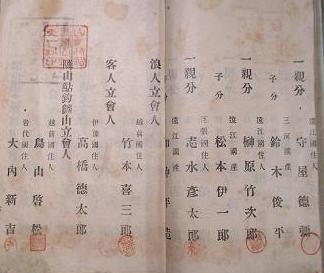 遠江國住人
一親分 守屋德
三河國產
子分 鈴木俊平
遠江國產
一親分 榊原竹次郎
遠江國產
子分 松本伊一郎
尾張國產
志水彥太郎
浪人立會人
越前國住人
客人立會人 竹本喜三郎
伊豫國住人
高橋德太郎
山立會人
越前國住人
鳥山啓松
岩代國住人
大內新吉